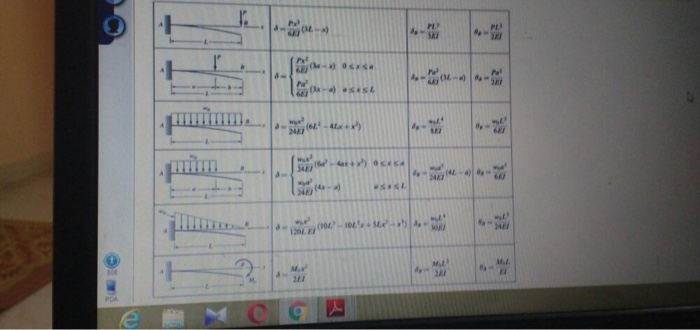 P A B x L δ = Px²/6EI (3L − x) δ_B = PL³/3EI θ_B = PL²/2EI
P A B x a b L δ = { Px²/6EI (3a − x) 0 ≤ x ≤ a
Pa²/6EI (3x − a) a ≤ x ≤ L δ_B = Pa²/6EI (3L − a) θ_B = Pa²/2EI
w₀ A B x L δ = w₀x²/24EI (6L² − 4Lx + x²) δ_B = w₀L⁴/8EI θ_B = w₀L³/6EI
w₀ A B a b L δ = { w₀x²/24EI (6a² − 4ax + x²) 0 ≤ x ≤ a
w₀a³/24EI (4x − a) a ≤ x ≤ L δ_B = w₀a³/24EI (4L − a) θ_B = w₀a³/6EI
w₀ A B x L δ = w₀x²/120L EI (10L³ − 10L²x + 5Lx² − x³) δ_B = w₀L⁴/30EI θ_B = w₀L³/24EI
A B M₀ L δ = M₀x²/2EI δ_B = M₀L²/2EI θ_B = M₀L/EI
PDA